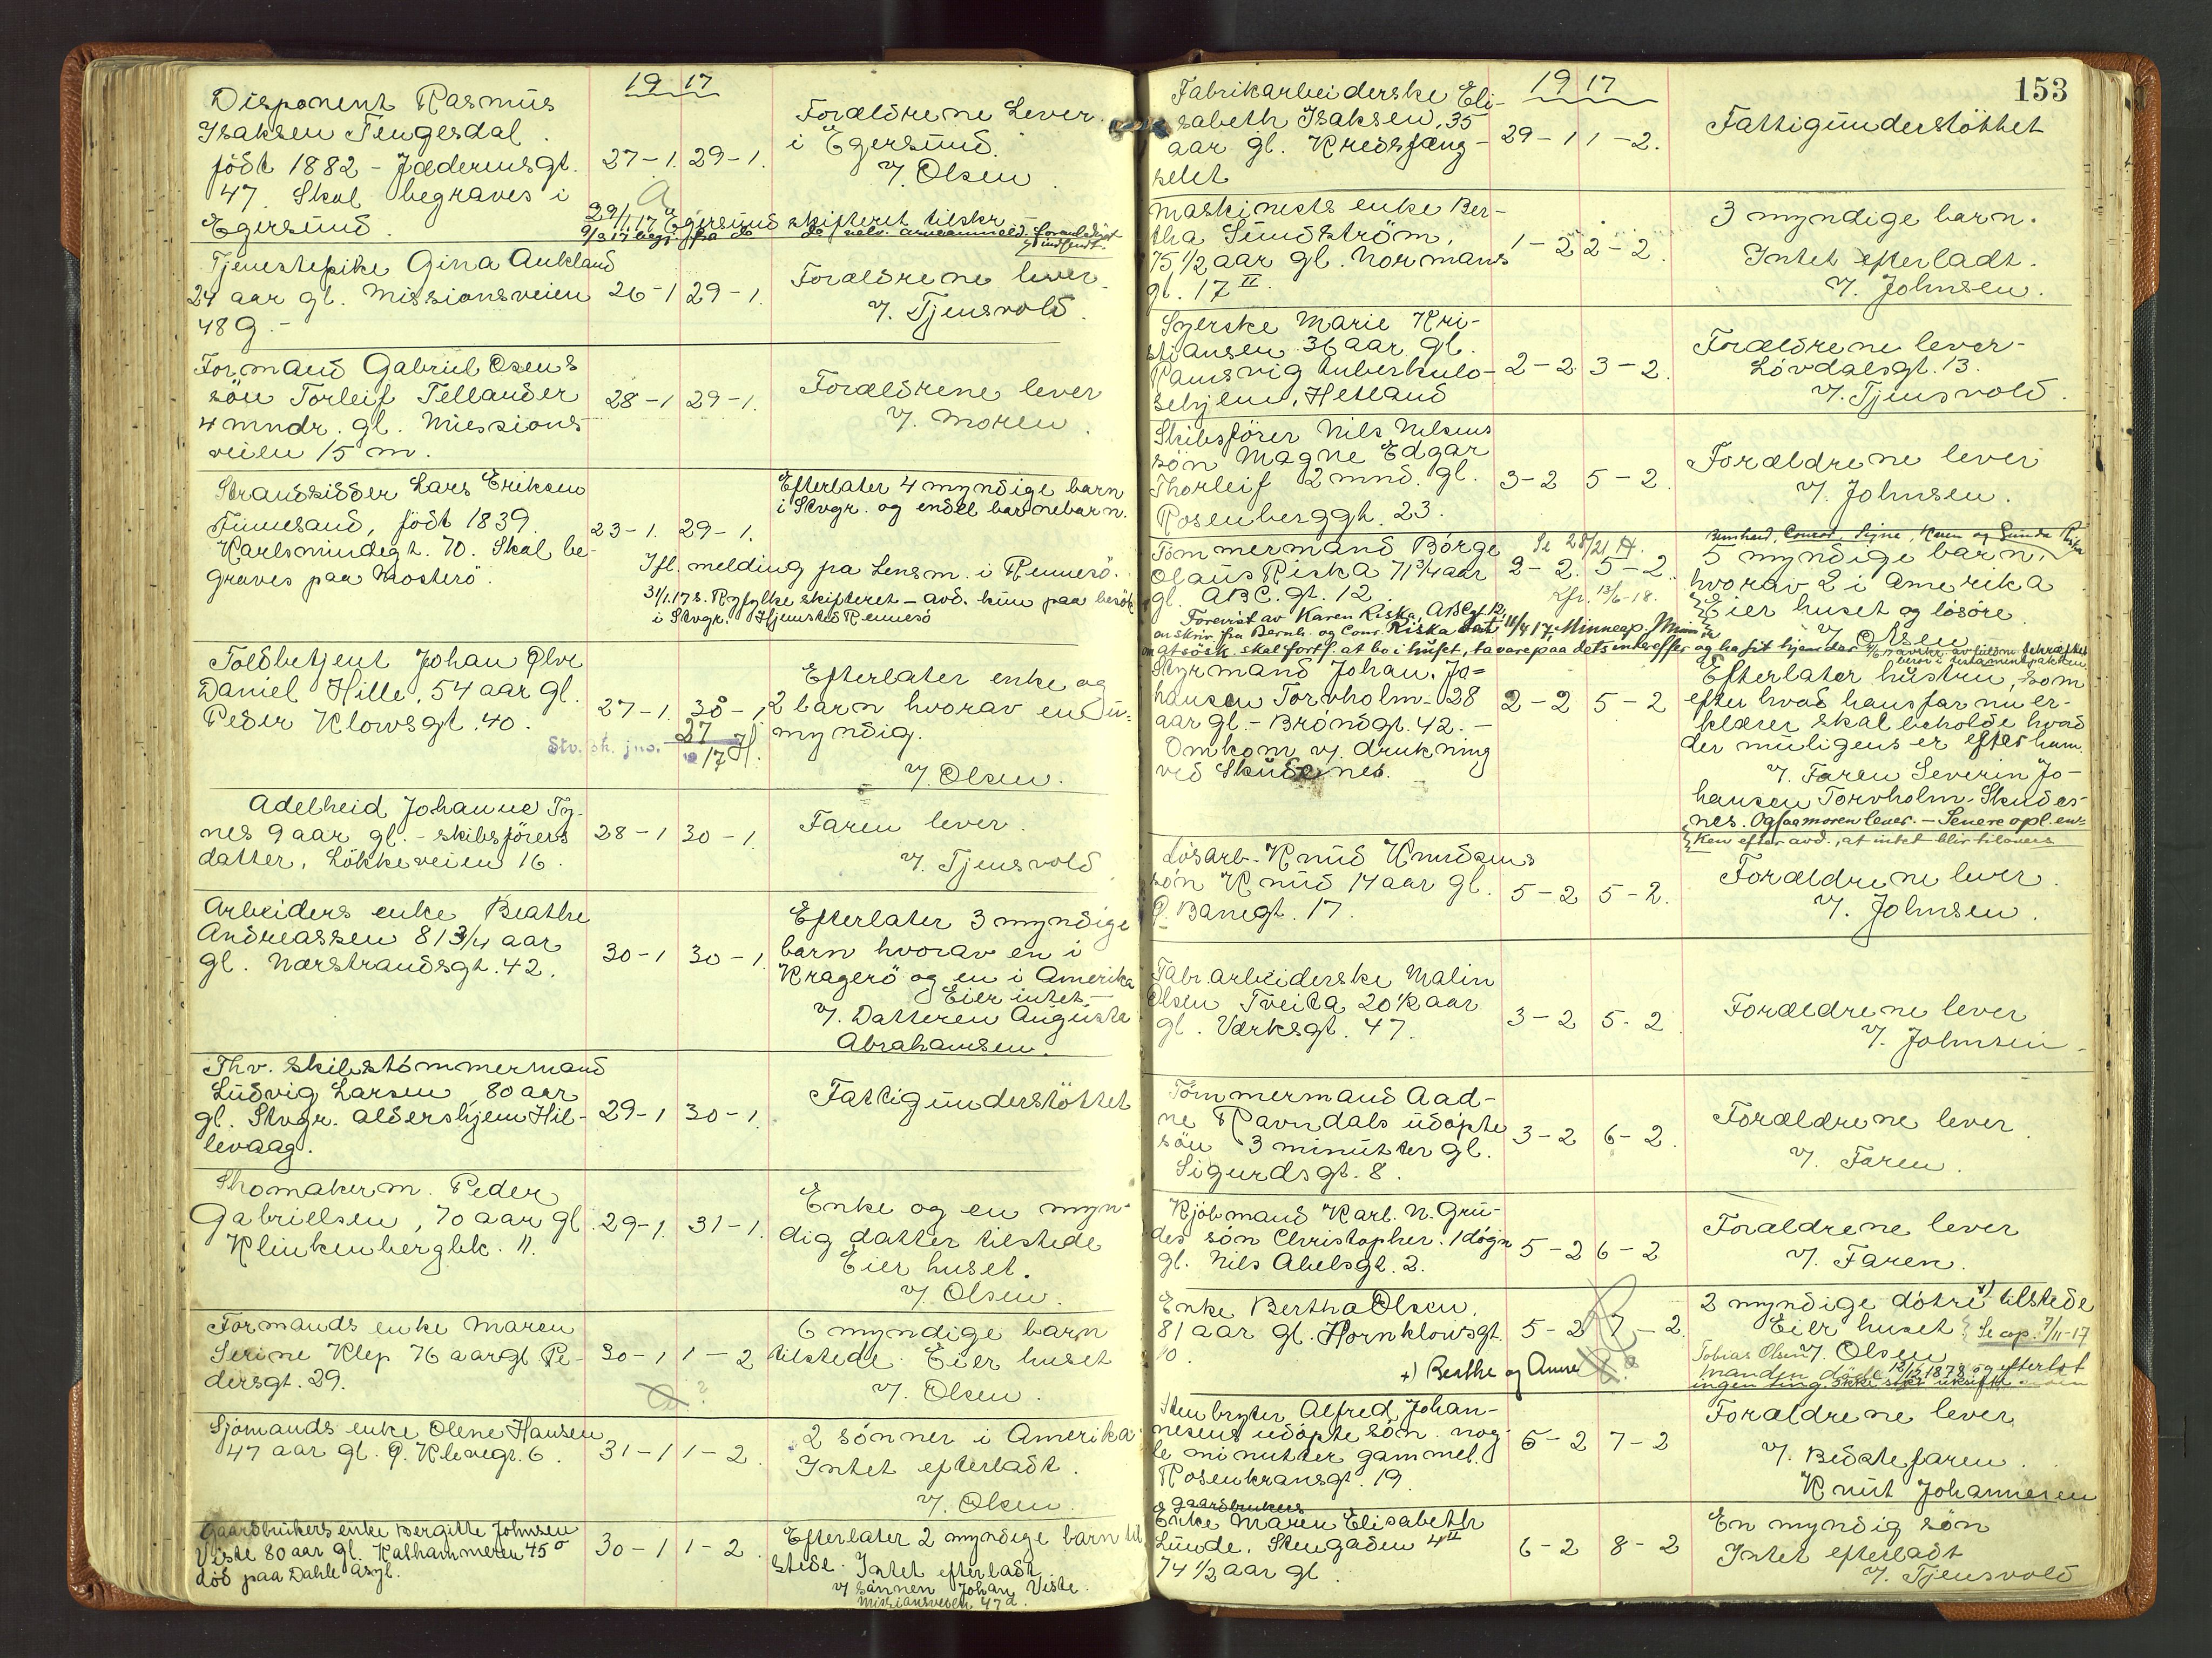 19 17
Disponent Rasmus
Isaksen Tengesdal.
född 1882 - Jæderensgt.
47. Skal begraves i
Egersund.
27-1. 29-1.
Forældrene Lever
i Egersund.
V. Olsen
29/1 17 Egersund skifteret tilskr.
Tjenestepike Gina Aukland
24 aar gl. Missionsveien
48 g.-
26-1 29-1.
Forældrene lever.
V. Tjensvold.
Formand Gabriel Osens
sön Torleif Tellander
4 mndr. gl. Missions
veien 15 m.
28-1 29-1.
Forældrene lever
V. Moren.
Strandsidder Lars Eriksen
Finnesand, född 1839.
Karlsmindegt. 70. Skal be-
graves paa Mosterö.
23-1. 29-1.
Efterlater 4 myndige barn
i Stvgr. og endel barnebarn.
Ifl. melding fra Lensm. i Rennesö.
31/1.17 s. Ryfylke skifteret - avd. kun paa besök
i Stvgr. Hjemsted Rennesö
Toldbetjent Johan Olve
Daniel Hille, 54 aar gl.
Peder Klowsgt. 40.
27-1. 30-1
Efterlater enke og
2 barn hvorav en u-
myndig.
V. Olsen.
Stv. sk. jno. 27
17
Adelheid Johanne Ty-
nes 9 aar gl. - skibsförers
datter, Lökkeveien 16.
28-1 30-1.
Faren lever.
V. Tjensvold
Arbeiders enke Beathe
Andreassen 81 3/4 aar
gl. Nærstrandsgt. 42.
30-1 30-1.
Efterlater 3 myndige
barn hvorav en i
Kragerö og en i Amerika
Eier intet.-
V. Datteren Augusta
Abrahamsen.
Fhv. Skibstömmermand
Ludvig Larsen, 80 aar
gl. Stvgr. aldershjem Hil-
levaag.
29-1 30-1.
Fattigunderstöttet
Skomakerm. Peder
Gabrielsen, 70 aar gl
Klinkenbergbk. 11.
29-1. 31-1.
Enke og en myn-
dig datter tilstede
Eier huset.
V. Olsen.
Formands enke Maren
Serine Klep 76 aar gl. Pe-
dersgt. 29.
30-1 1-2
6 myndige barn
tilstede. Eier huset
V. Olsen.
Sjömands enke Olene Hansen
47 aar gl. Ø. Klevegt. 6.
31-1 1-2.
2 sönner i Amerika
Intet efterladt.
V. Olsen.
Gaardbrukers enke Bergitte Johnsen
Viste 80 aar gl. Kathammeren 45
död paa Dahle asyl.
30-1 1-2.
Efterlater 2 myndige barn til
stede. Intet efterladt
V sönnen Johan Viste.
Missionsveien 47 d.
153
19 17
Fabrikarbeiderske Eli-
sabeth Isaksen, 35
aar gl. Kredsfæng-
selet
29-1 1-2.
Fattigunderstöttet
Maskinists enke Ber-
tha Sundström,
75 1/2 aar gl. Normans
gt. 17 II.
1-2 2-2.
3 myndige barn.
Intet efterladt.
V. Johnsen.
Syerske Marie Kri-
stiansen 36 aar gl.
Ramsvig tuberkulo-
sehjem, Hetland
2-2 3-2.
Forældrene lever-
Lövdalsgt. 13.
V. Tjensvold.
Skibsförer Nils Nilsens
sön Magne Edgar
Thorleif 2 mnd. gl.
Rosenberggt. 23.
3-2 5-2.
Forældrene lever
V. Johnsen.
Tömmermand Börge
Olaus Riska 71 3/4 aar
gl. ABC. gt. 12
Se 28/21
2-2. 5-2.
Kfr. 13/6-18.
Bernhard, Conrad, Signe, Karen og Gunda Riska
5 myndige barn,
hvorav 2 i Amerika
Eier huset og lösöre
V. Olsen
Forevist av Karen Riska, ABCgt. 12,
en skriv. fra Bernh. og Conr. Riska dat 11/4 17, Minneap. Minn
om at sösk. skal fortf. at bo i huset, ta vare paa dets interesser og ha sit hjem der
Styrmand Johan Jo-
hansen Torvholm - 28
aar gl. - Bröndgt. 42.-
Omkom v. drukning
ved Skudenes.
2-2 5-2
Efterlater hustru, som
efter hvad hans far nu er-
klærer skal beholde hvad
der muligens er efter ham.
V. Faren Severin Jo-
hansen Torvholm. Skudes-
nes. Ogsaa moren lever. - Senere opl. en-
ken efter avd., at intet blir tilovers
Lösarb. Knud Knudsens
sön Knud 14 aar gl.
Ø. Banegt. 17.
5-2 5-2.
Forældrene lever.
V. Johnsen.
Fabr. arbeiderske Malin
Olsen Tveita 20 1/2 aar
gl. Værksgt. 47.
3-2 5-2.
Forældrene lever
V. Johnsen
Tömmermand Aad-
ne Ravndals udöpte
sön 3 minutter gl.
Sigurdsgt. 8.
3-2 6-2.
Forældrene lever
V. Faren.
Kjöbmand Karl N. Gru-
des sön Christopher. 1 dögn
gl. Nils Abelsgt. 2.
5-2 6-2
Forældrene lever
V. Faren.
Enke Bertha Olsen.
81 aar gl. Hornklowsgt.
10.
5-2 7-2.
2 myndige dötre +) tilstede
Eier huset Se cop. 7/11-17
V. Olsen
+) Beathe og Anne
Tobias Olsen
Manden döde 12/12 1878 og efterlot
ingen ting.
Stenbryter Alfred Johan-
nesens udöpte sön nog-
le minutter gammel.
Rosenkransgt. 19.
6-2 7-2
Forældrene lever
V. Bedstefaren.
Knut Johannesen
Gaardbrukers
Enke Maren Elisabeth
Lunde. Stengaden 4 II
74 1/2 aar gl.
6-2 8-2
En myndig sön
Intet efterladt
V. Tjensvold